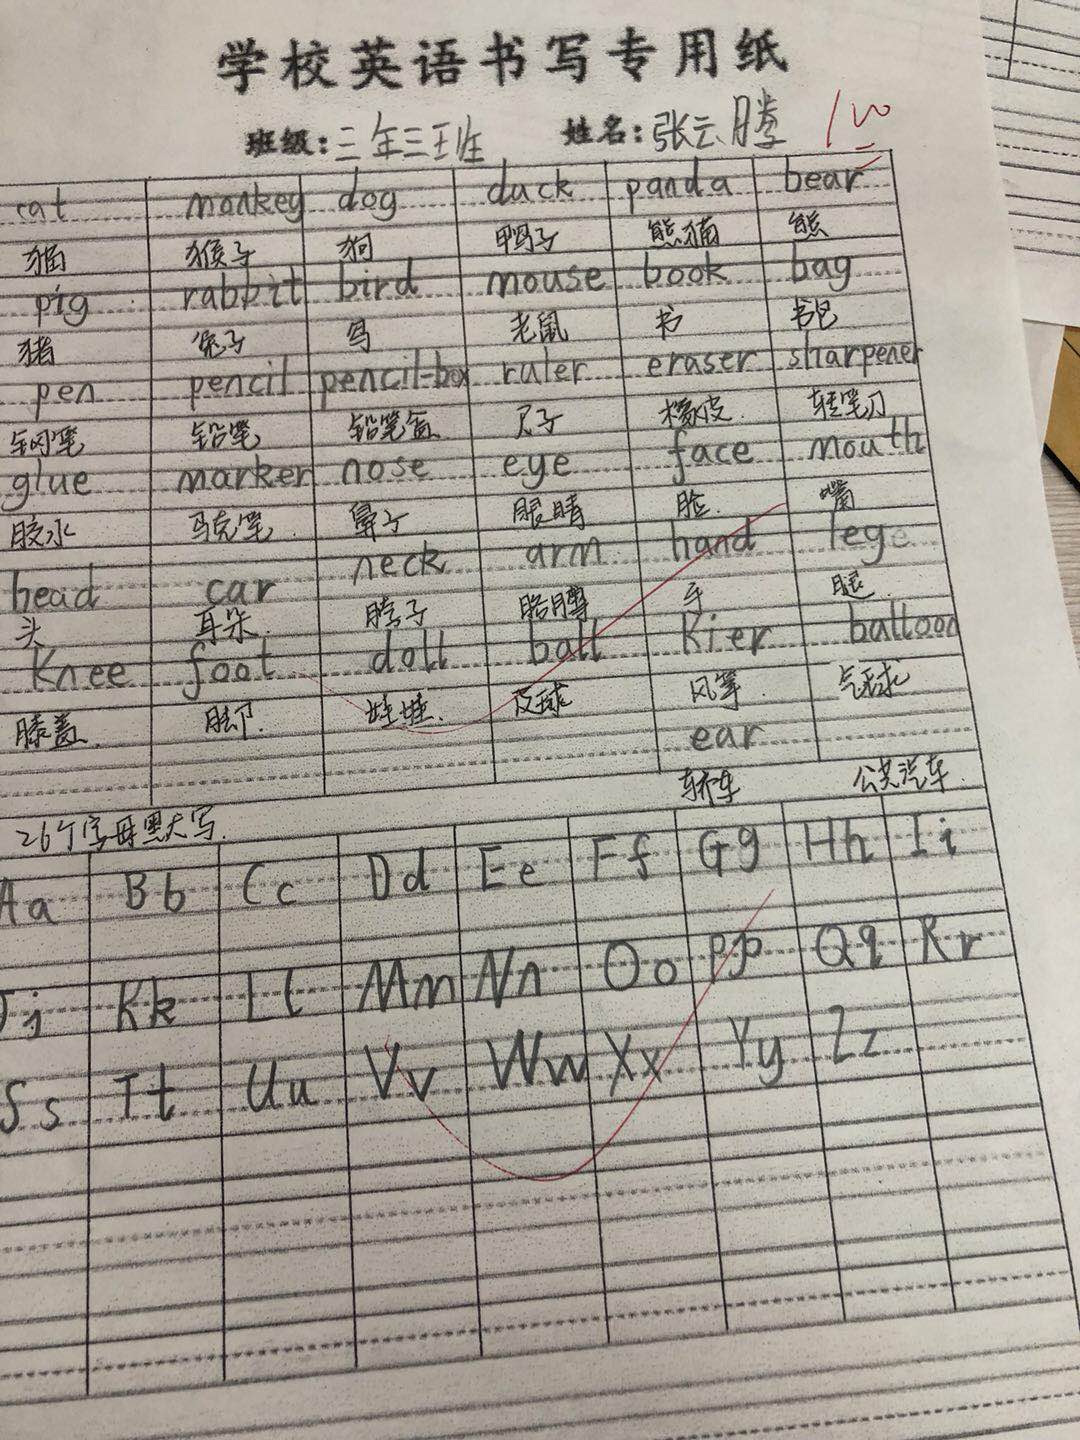 学校英语书写专用纸
班级:三年三班 姓名:张云腾 100
cat monkey dog duck panda bear
猫 猴子 狗 鸭子 熊猫 熊
pig rabbit bird mouse book bag
猪 兔子 鸟 老鼠 书 书包
pen pencil pencil-box ruler eraser sharpener
钢笔 铅笔 铅笔盒 尺子 橡皮. 转笔刀
glue marker nose eye face mouth
胶水 马克笔. 鼻子 眼睛 脸. 嘴
head car neck arm hand leg
头 耳朵. 脖子 胳膊 手 腿.
Knee foot doll ball Kier balloon
膝盖. 脚. 娃娃. 皮球 风筝. 气球
ear
轿车 公共汽车.
26个字母默大写.
Aa Bb Cc Dd Ee Ff Gg Hh Ii
Jj Kk Ll Mm Nn Oo Pp Qq Rr
Ss Tt Uu Vv Ww Xx Yy Zz